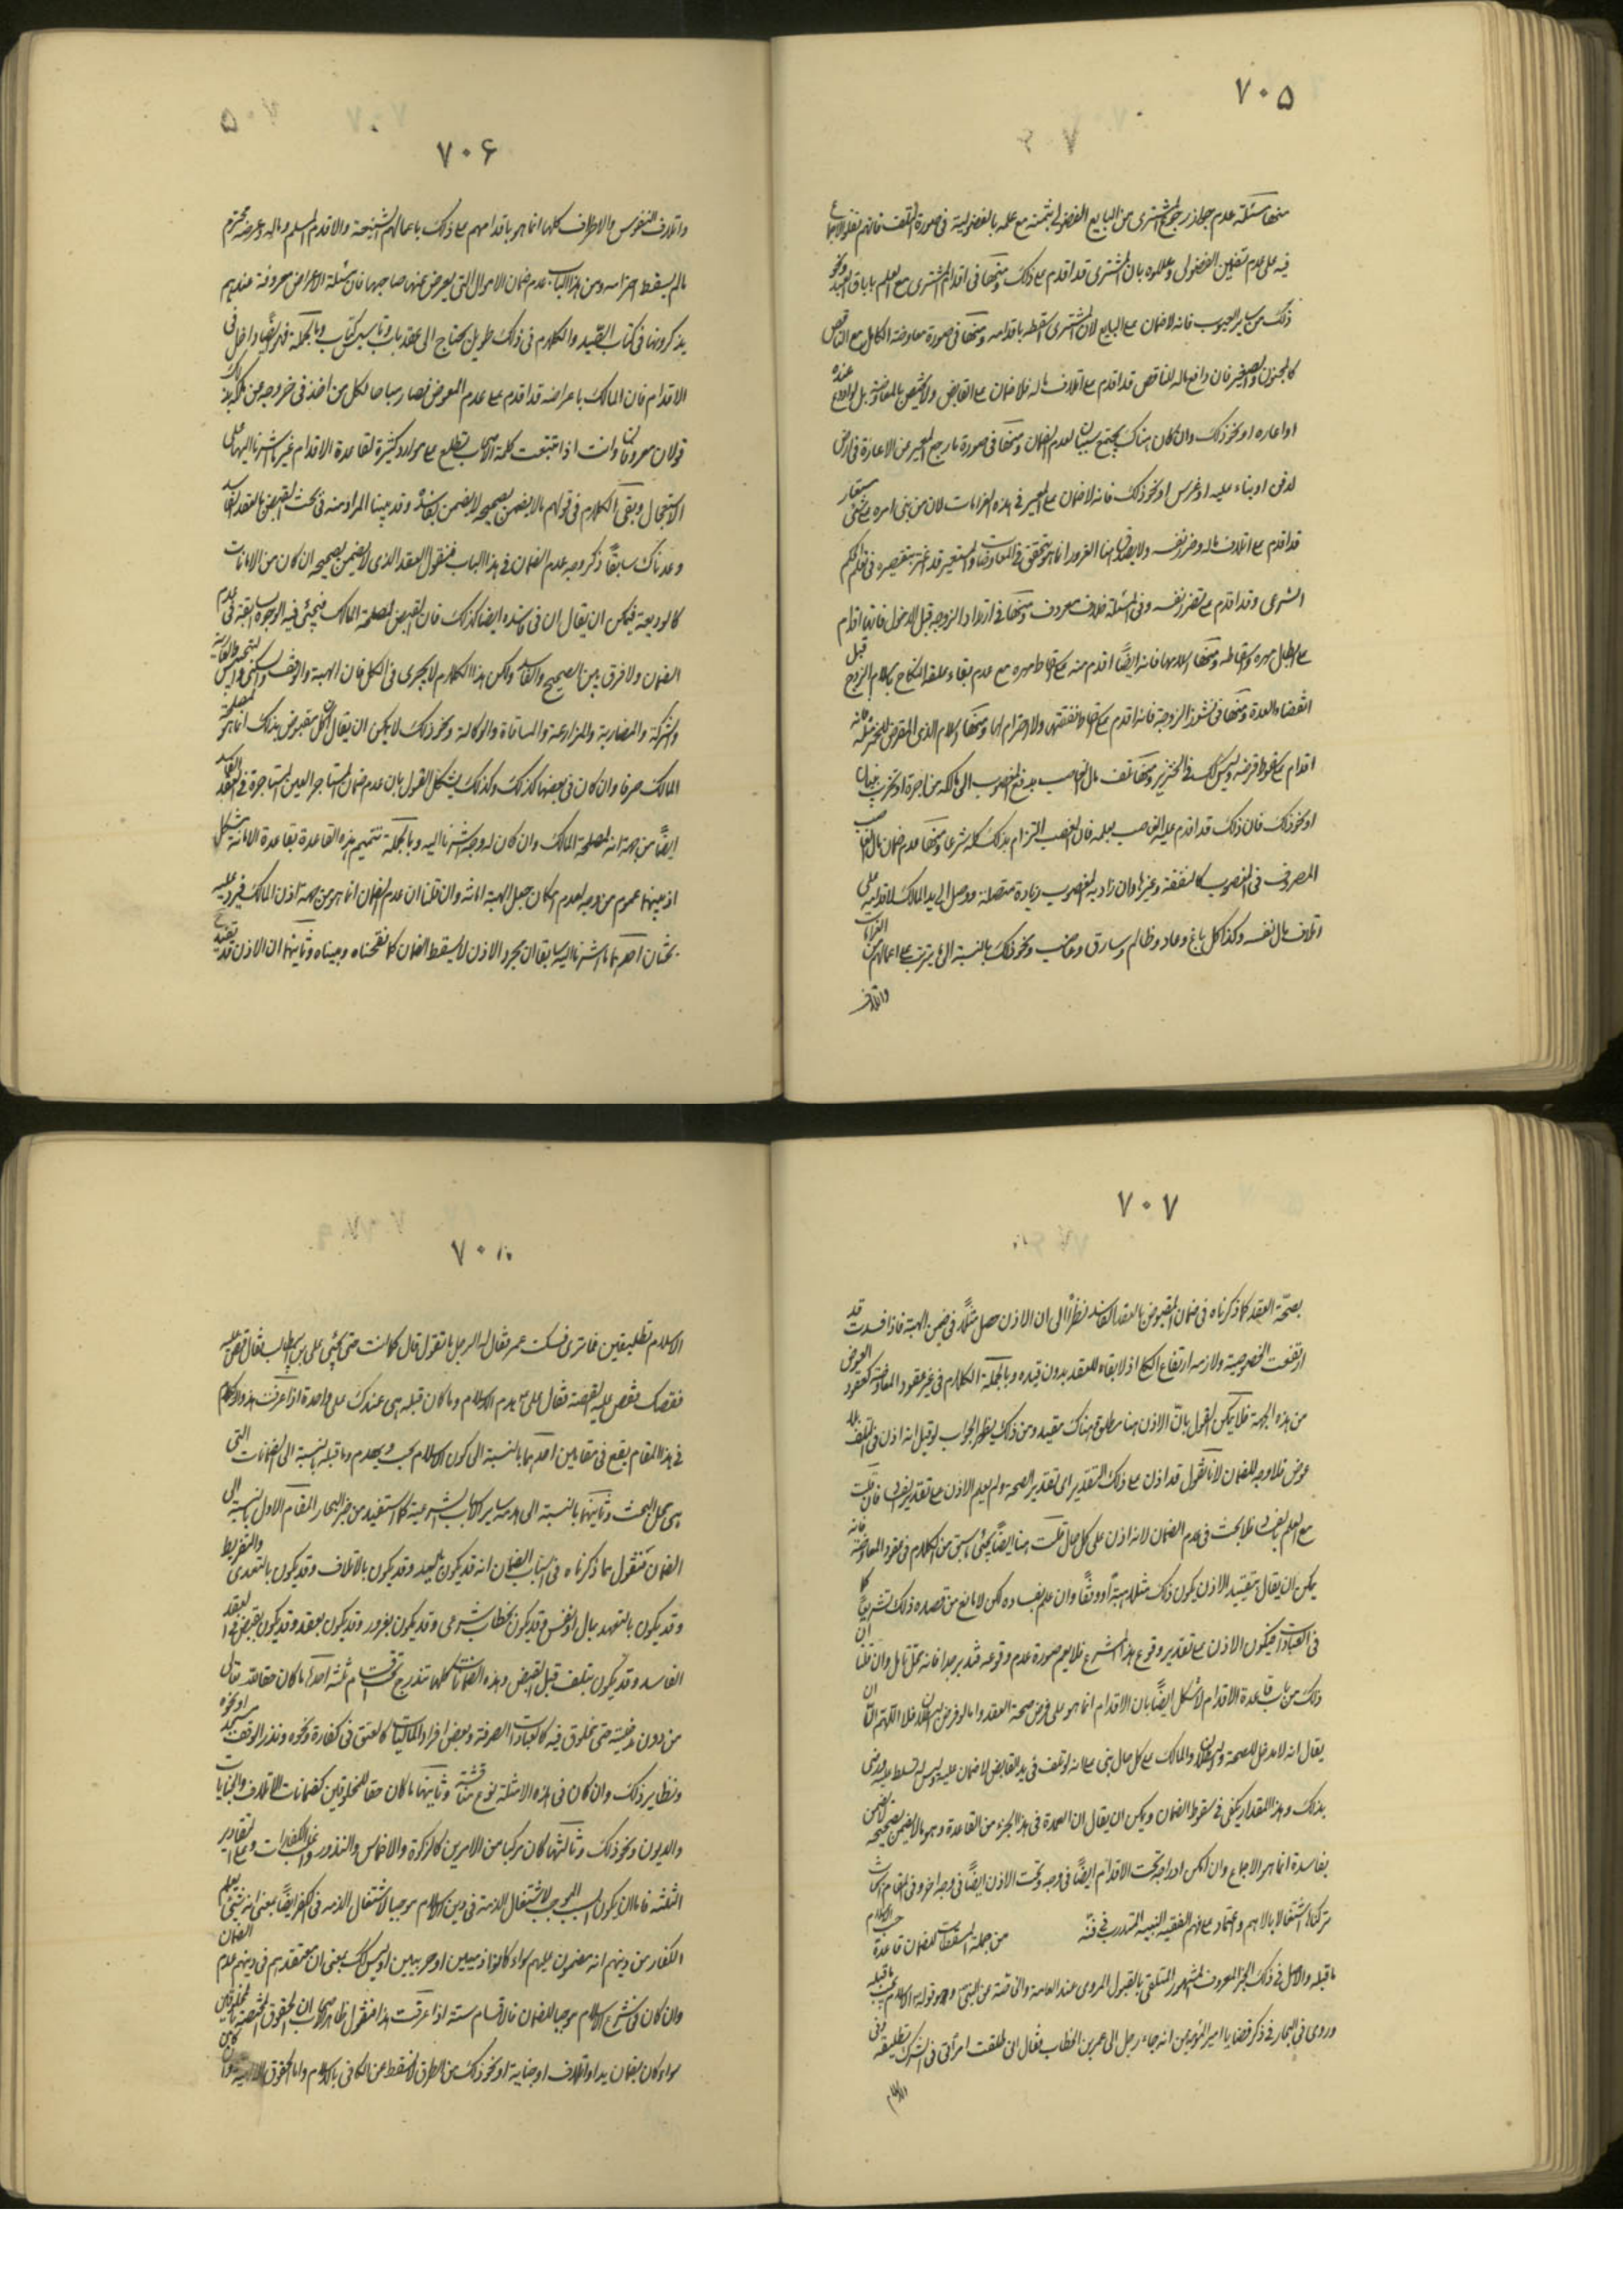 ٧٠٥
منها مسئلة عدم جواز رجوع المشترى من البايع الفضولى بثمنه مع علمه بالفضولية فى صورة التلف فانهم نقلوا الاجماع
فيه على عدم تضمين الفضولى وعللوه بان المشترى قد اقدم على ذلك ومنها فى اقدام المشترى مع العلم باباق العبد ونحو
ذلك من ساير العيوب فانه لا ضمان على البايع لان المشترى اسقطه باقدامه ومنها فى صورة معاوضة الكامل مع الناقص
كالمجنون والصغير فان دافع ماله للناقص قد اقدم على اتلاف ماله فلا ضمان على القابض ولا يختص بالمعاوضة بل لو اودع عنده
او اعاره او نحو ذلك وان كان هناك يجتمع سببان لعدم الضمان ومنها فى صورة ما رجع المعير من الاعارة فى ارض
لدفن او بناء عليه او غرس او نحو ذلك فانه لا ضمان على المعير فى هذه الغرامات لان من بنى امره على شئ مستعار
قد اقدم على اتلاف ماله وضرر نفسه ولا يصدق هنا الغرور انما هو يتحقق فى المعاوضات والمستعير قد اغتر بتقصيره فى تعلم الحكم
الشرعى وقد اقدم على تضرر نفسه وفى المسئلة خلاف معروف ومنها فى ارتداد الزوجة قبل الدخول فانها اقدام
على ابطال مهره واسقاطه ومنها اسلامها فانه ايضًا اقدم منه على اسقاط مهره مع عدم بقاء علقة النكاح باسلام الزوج قبل
انقضاء العدة ومنها فى نشوز الزوجة فانه اقدم على اسقاط نفقتها ولا احترام لها ومنها اسلام الذمى المقرض للخمر مثله فانه
اقدام على سقوط قرضه وليس كذلك فى الخنزير ومنها تلف مال الغاصب بدفع المغصوب الى مالكه من اجرة او تخريب بنيان
او نحو ذلك فان ذلك قد اقدم عليه الغاصب بعلمه فان الغصب التزام بذلك كله شرعا ومنها عدم ضمان مال الغاصب
المصروف فى المغصوب كالنفقة وغيرها وان زاد به المغصوب زيادة متصلة ووصل الى يد المالك لاقدامه على
اتلاف مال نفسه وكذا كل باغ وعاد وظالم وسارق وغاصب ونحو ذلك بالنسبة الى ما يترتب على اعمالهم من الغرامات
واتلاف
٧٠۶
واتلاف النفوس والاطراف كلها انما هو باقدامهم على ذلك باعمالهم الشنيعة والا فدم المسلم وماله وعرضه محترم
ما لم يسقط احترامه ومن هذا الباب عدم ضمان الاموال التى يعرض عنها صاحبها فان مسئلة الاعراض معروفة عندهم
يذكرونها فى كتاب الصيد والكلام فى ذلك طويل يحتاج الى عقد باب وتاسيس كتاب وبالجملة فهو ايضًا داخل فى
الاقدام فان المالك باعراضه قد اقدم على عدم العوض فصار مباحا لكل من اخذ فى خروجه عن ملكه بذلك
قولان معروفان وانت اذا تتبعت كلمة الاصحاب تطلع على موارد كثيرة لقاعدة الاقدام غير ما اشرنا اليها على
الاستعجال وبقى الكلام فى قولهم ما لا يضمن بصحيحه لا يضمن بفاسده وقد بينا المراد منه فى بحث القبض بالعقد الفاسد
وعدناك سابقًا ذكر وجه عدم الضمان فى هذا الباب فنقول العقد الذى لا يضمن بصحيحه ان كان من الامانات
كالوديعة فيمكن ان يقال ان فى فاسده ايضا كذلك فان القبض لمصلحة المالك فيجئ فيه الوجوه السابقة فى عدم
الضمان ولا فرق بين الصحيح والفاسد ولكن هذا الكلام لا يجرى فى الكل فان الهبة والوقف والسكنى والحبس
والشركة والمضاربة والمزارعة والمساقاة والوكالة ونحو ذلك لا يمكن ان يقال ان كل مقبوض بذلك انما هو لمصلحة
المالك صرفا وان كان فى بعضها كذلك وكذلك يشكل القول بان عدم ضمان المستاجر العين المستاجرة فى العقد الفاسد
ايضًا من جهة انه لمصلحة المالك وان كان له وجه اشرنا اليه وبالجملة تتميم هذه القاعدة بقاعدة الامانة مشكل
اذ بينهما عموم من وجه لعدم امكان جعل الهبة امانة وان قلنا ان عدم الضمان انما هو من جهة اذن المالك فيرد عليه
بحثان احدهما ما اشرنا اليه سابقا ان مجرد الاذن لا يسقط الضمان كما نقحناه وبيناه وثانيهما ان الاذن قد تقيد
٧٠٧
بصحة العقد كما ذكرناه فى ضمان المقبوض بالعقد الفاسد نظرًا الى ان الاذن حصل مثلًا فى ضمن الهبة فاذا فسدت قد
ارتفعت الخصوصية ولازمه ارتفاع الكل اذ لا بقاء للعقد بدون قيده وبالجملة الكلام فى غير عقود المعاوضة كعقود العوض
من هذه الجهة فلا يمكن القول بان الاذن هنا مطلق وهناك مقيد ومن ذلك يظهر الجواب لو قيل انه اذن فى التلف بلا
عوض فلا وجه للضمان لانا نقول قد اذن على ذلك التقدير اى تقدير الصحة ولم يعلم الاذن على تقدير الفساد فان قلت
مع العلم بالفساد فلا بحث فى عدم الضمان لانه اذن على كل حال قلت هنا ايضًا يجئ ما سبق من الكلام فى عقود المعاوضة فانه
يمكن ان يقال بتقييد الاذن بكون ذلك مثلا هبة او وقفًا وان علم بفساده لكن لا مانع من قصده ذلك تشريعًا كما
فى العبادات فيكون الاذن على تقدير وقوع هذا المشرع فلا يعم صورة عدم وقوعه فتدبر جدا فانه محل تامل وان قلنا ان
ذلك من باب قاعدة الاقدام لاشكل ايضًا بان الاقدام انما هو على فرض صحة العقد واما لو فرض بطلانه فلا اللهم الا ان
يقال انه لا مدخل للصحة والبطلان والمالك على كل حال بنى على انه لو تلف فى يد القابض لا ضمان عليه وليس له تسلط عليه ورضى
بذلك وهذا المقدار يكفى فى سقوط الضمان ويمكن ان يقال ان العمدة فى هذا الجزء من القاعدة وهو ما لا يضمن بصحيحه لا يضمن
بفاسده انما هو الاجماع وان امكن ادراجه تحت الاقدام ايضًا فى وجه وتحت الاذن ايضًا فى وجه اخر وفى المقام ابحاث
تركناها اشتغالا بالاهم واعتمادا على فهم الفقيه النبيه المتدرب فى فنه من جملة المسقطات للضمان قاعدة جب الاسلام
ما قبله والاصل فى ذلك الخبر المعروف المشهور المتلقى بالقبول المروى عند العامة والخاصة عن النبى وهو قوله الاسلام يجب ما قبله
وروى فى البحار فى ذكر قضايا امير المؤمنين انه جاء رجل الى عمر بن الخطاب فقال انى طلقت امرأتى فى الشرك تطليقة وفى
الاسلام
٧٠٨
الاسلام تطليقتين فما ترى فسكت عمر فقال له الرجل ما تقول قال كما انت حتى يجئ على بن ابيطالب فجاء على فقال قص عليه
قصتك فقص عليه القصة فقال على هدم الاسلام ما كان قبله هى عندك على واحدة اذا عرفت هذا فالكلام
فى هذا المقام يقع فى مقامين احدهما بالنسبة الى كون الاسلام يجب ويهدم ما قبله بالنسبة الى الضمانات التى
هى محل البحث وثانيهما بالنسبة الى هدمه ساير الاسباب الشرعية كما استفيد من خبر البحار المقام الاول بالنسبة الى
الضمان فنقول مما ذكرناه فى اسباب الضمان انه قد يكون باليد وقد يكون بالاتلاف وقد يكون بالتعدى والتفريط
وقد يكون بالتعهد بمال او نفس وقد يكون بخطاب شرعى وقد يكون بغرور وقد يكون بعقد وقد يكون بقبض فى العقد
الفاسد وقد يكون بتلف قبل القبض وهذه الضمانات كلها تندرج تحت اقسام ثلثة احدها ما كان حقا لله تعالى
من دون مدخلية حق مخلوق فيه كالعبادات الصرفة وبعض افراد الماليات كالعتق فى كفارة ونحوه ونذر الوقف لمسجد او نحوه
ونظاير ذلك وان كان فى هذه الامثلة نوع مناقشة وثانيها ما كان حقا للمخلوقين كضمانات الاتلاف والجنايات
والديون ونحو ذلك وثالثها ما كان مركبا من الامرين كالزكوة والاخماس والنذور وغالب الكفارات وعلى التقادير
الثلثة فاما ان يكون السبب الموجب لاشتغال الذمة فى دين الاسلام موجبا لاشتغال الذمة فى الكفر ايضًا بمعنى انه شئ يعلم
الكفار من دينهم انه مضمون عليهم سواء كانوا ذميين او حربيين او ليس كذلك بمعنى ان معتقدهم فى دينهم عدم الضمان
وان كان فى شرع الاسلام موجبا للضمان فالاقسام ستة اذا عرفت هذا فنقول ظاهر الاصحاب ان الحقوق المختصة بالمخلوقين
سواء كان بضمان يد او اتلاف او جناية او نحو ذلك من الطرق لا تسقط عن الكافر بالاسلام واما الحقوق الالهية